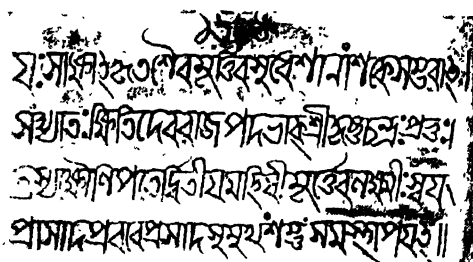 যঃ সাক্ষাৎকৃত শৈবমূর্ত্তি
সংখ্যাতঃ ক্ষিতিদেবরাজপদভাক্ শ্রীকৃষ্ণচন্দ্রঃ প্রভুঃ।
ক্ষৌণিপতের্দ্বিতীয়মহিষী মূর্ত্তেব লক্ষ্মীঃ স্বয়ং
প্রাসাদপ্রবরে প্রসাদসুমুখং শম্ভুং সমস্থাপয়ৎ॥